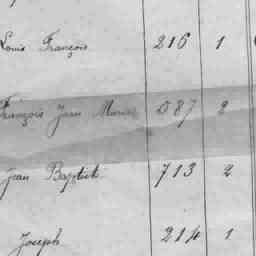 Louis François 216 1
François Jean Marie 587 2
Jean Baptiste 713 2
Joseph 214 1